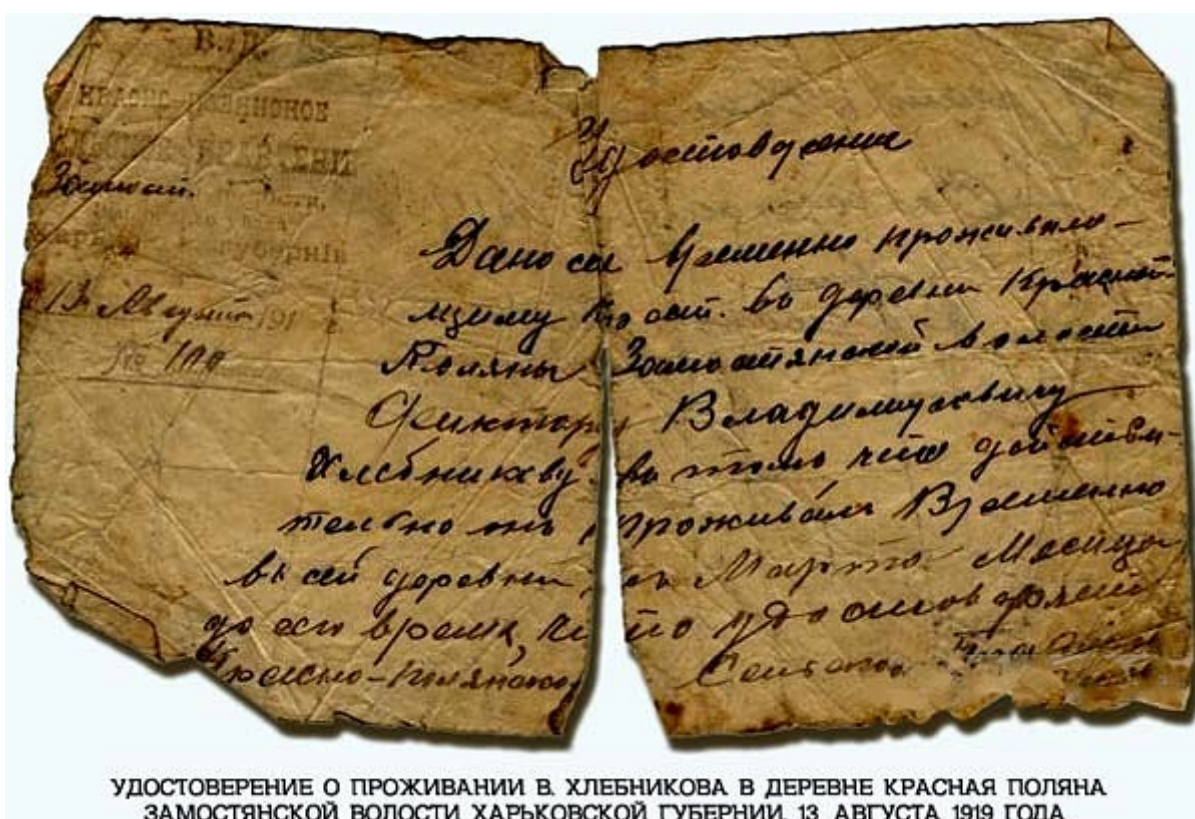 КРАСНО-
Замост.
губернія
13 Августа 191
№ 100
Удостоверение
Дано сие Временно прожива
ющему в деревни Красной
Поляны Замостянской волости
Фиктору Владимировичу
Хлебникову въ томъ что действи-
тельно онъ проживалъ Временно
въ сей деревни съ Марта Месяца
до сего время, что удостоверяетъ
Красно-Полянской Сельской
УДОСТОВЕРЕНИЕ О ПРОЖИВАНИИ В. ХЛЕБНИКОВА В ДЕРЕВНЕ КРАСНАЯ ПОЛЯНА
ЗАМОСТЯНСКОЙ ВОЛОСТИ ХАРЬКОВСКОЙ ГУБЕРНИИ. 13 АВГУСТА 1919 ГОДА